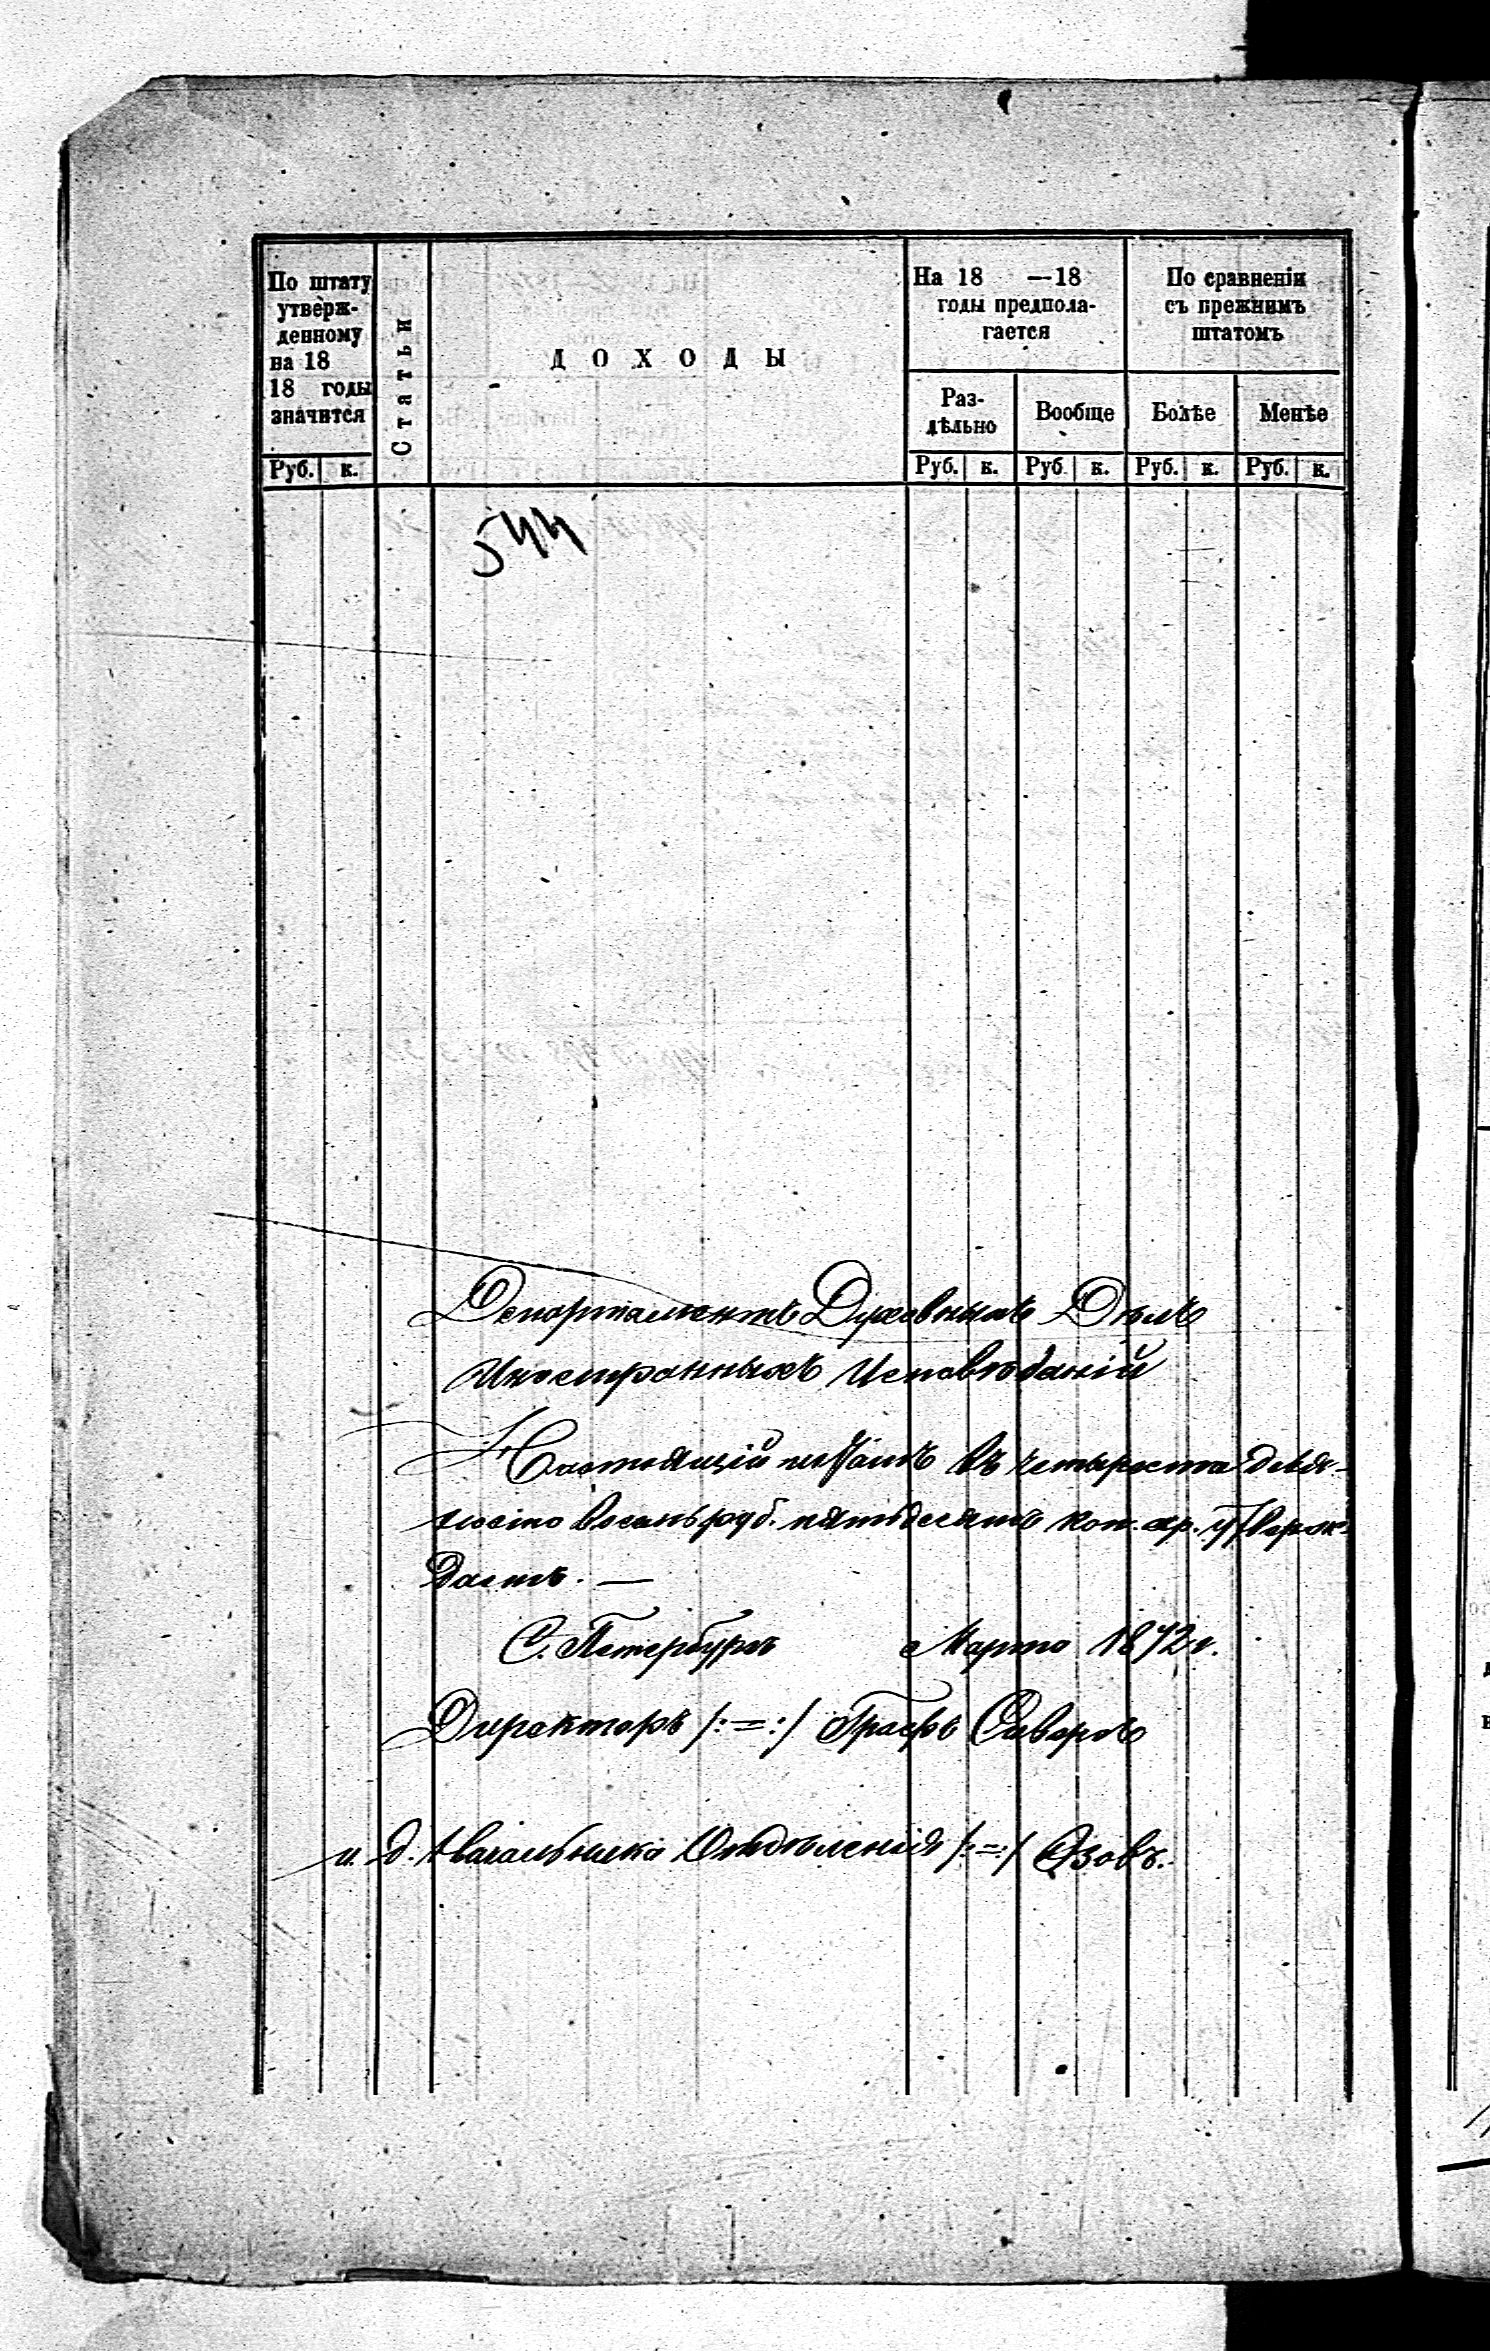 По штату
утверж-
денному
на 18
18 годы
значится
Статьи
ДОХОДЫ
На 18 —18
годы предпола-
гается
По сравненіи
съ прежнимъ
штатомъ
Раз-
дѣльно
Вообще
Болѣе
Менѣе
Руб. к.
Руб. к. Руб. к. Руб. к. Руб. к.
544
Департаментъ Духовныхъ Дѣлъ
Иностранныхъ Исповѣданій
Настоящій штатъ въ четыреста девя-
носто восемь руб. пятьдесятъ коп. ср. утверж-
даетъ. —
С. Петербургъ Марта 1872 г.
Директоръ /:=:/ Графъ Сиверсъ
и. д. Начальника Отдѣленія /:=:/ Азовъ.